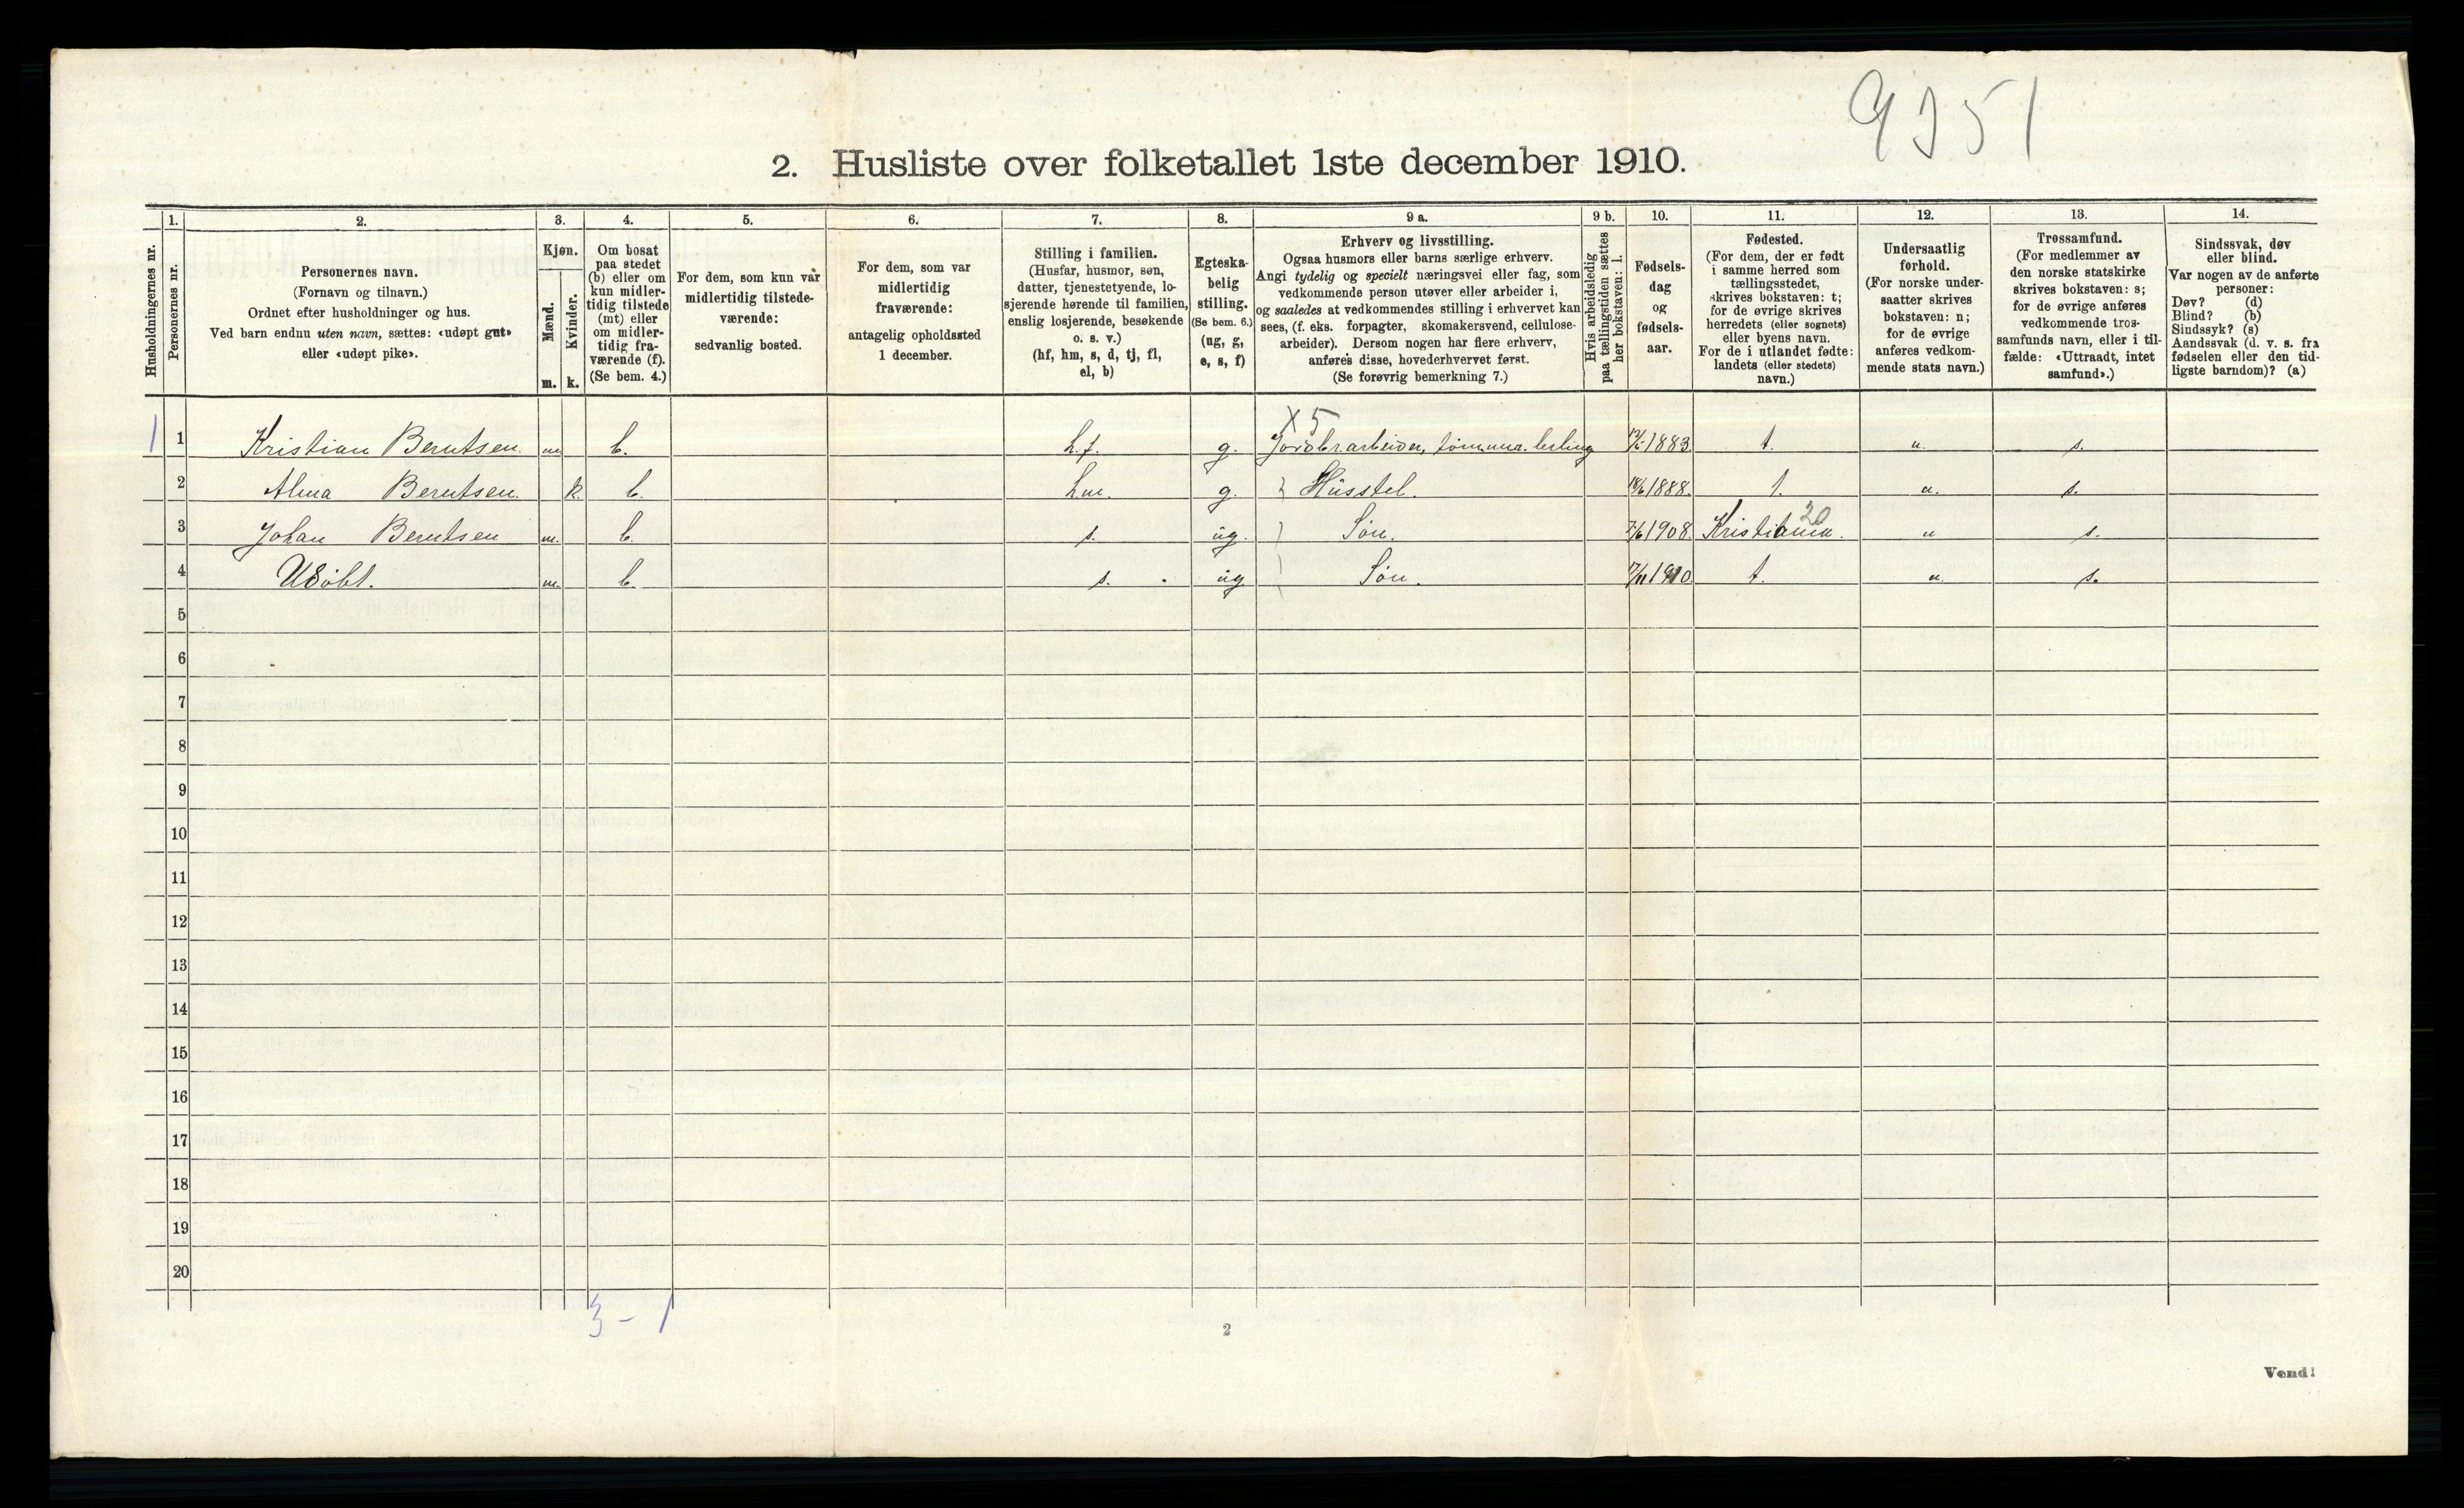 9351
2. Husliste over folketallet 1ste december 1910.
Husholdningernes nr.
1.
Personernes nr.
2.
Personernes navn.
(Fornavn og tilnavn.)
Ordnet efter husholdninger og hus.
Ved barn endnu uten navn, sættes: «udøpt gut»
eller «udøpt pike».
3.
Kjøn.
Mænd.
m.
Kvinder.
k.
4.
Om bosat
paa stedet
(b) eller om
kun midler-
tidig tilstede
(mt) eller
om midler-
tidig fra-
værende (f).
(Se bem. 4.)
5.
For dem, som kun var
midlertidig tilstede-
værende:
sedvanlig bosted.
6.
For dem, som var
midlertidig
fraværende:
antagelig opholdssted
1 december.
7.
Stilling i familien.
(Husfar, husmor, søn,
datter, tjenestetyende, lo-
sjerende hørende til familien,
enslig losjerende, besøkende
o. s. v.)
(hf, hm, s, d, tj, fl,
el, b)
8.
Egteska-
belig
stilling.
(Se bem. 6.)
(ug, g,
e, s, f)
9 a.
Erhverv og livsstilling.
Ogsaa husmors eller barns særlige erhverv.
Angi tydelig og specielt næringsvei eller fag, som
vedkommende person utøver eller arbeider i,
og saaledes at vedkommendes stilling i erhvervet kan
sees, (f. eks. forpagter, skomakersvend, cellulose-
arbeider). Dersom nogen har flere erhverv,
anføres disse, hovederhvervet først.
(Se forøvrig bemerkning 7.)
9 b.
Hvis arbeidsledig
paa tællingstiden sættes
her bokstaven: l.
10.
Fødsels-
dag
og
fødsels-
aar.
11.
Fødested.
(For dem, der er født
i samme herred som
tællingsstedet,
skrives bokstaven: t;
for de øvrige skrives
herredets (eller sognets)
eller byens navn.
For de i utlandet fødte:
landets (eller stedets)
navn.)
12.
Undersaatlig
forhold.
(For norske under-
saatter skrives
bokstaven: n;
for de øvrige
anføres vedkom-
mende stats navn.)
13.
Trossamfund.
(For medlemmer av
den norske statskirke
skrives bokstaven: s;
for de øvrige anføres
vedkommende tros-
samfunds navn, eller i til-
fælde: «Uttraadt, intet
samfund».)
14.
Sindssvak, døv
eller blind.
Var nogen av de anførte
personer:
Døv? (d)
Blind? (b)
Sindssyk? (s)
Aandssvak (d. v. s. fra
fødselen eller den tid-
ligste barndom)? (a)
X 5
1 1 Kristian Berntsen. m b. h.f. g. Jordbrarbeider, tømmer 1883 t. n. s.
2 Alma Berntsen. k. b. hm. g. Husstel. 1888. t. n. s.
20
3 Johan Berntsen m. b. s. ug. Søn. 1908. Kristiania. n s.
4 Udøbt. m. b. s. ug Søn. 1910 t. n. s.
5
6
7
8
9
10
11
12
13
14
15
16
17
18
19
20
3 - 1
2
Vend!